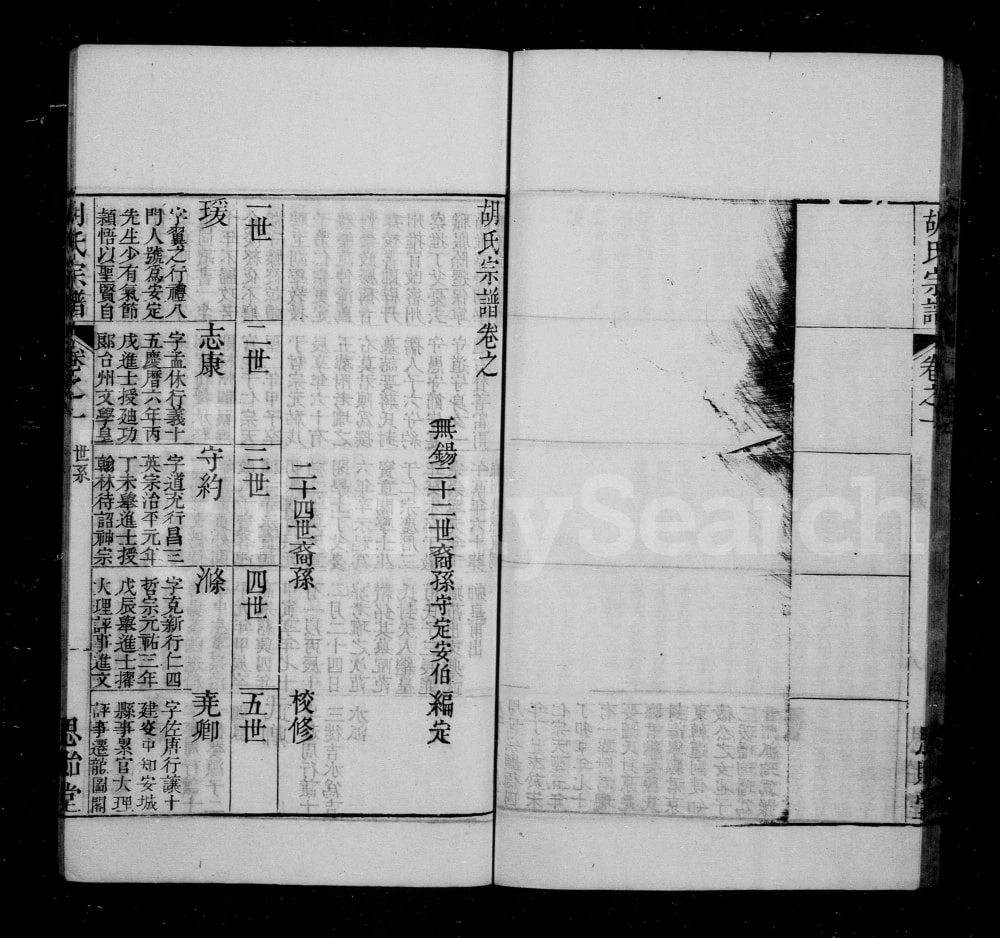 胡氏宗譜
卷之一
胡氏宗譜卷之
無錫二十二世裔孫守定安伯編定
二十四世裔孫 校修
一世 二世 三世 四世 五世
瑗
字翼之行禮八
門人號為安定
先生少有氣節
穎悟以聖賢自
志康
字孟休行義十
五慶曆六年丙
戌進士授廸功
郎台州文學皇
守約
字道充行昌三
英宗治平元年
丁未舉進士授
翰林待詔神宗
滌
字克新行仁四
哲宗元祐三年
戊辰舉進士擢
大理評事進文
堯卿
字佐唐行讓十
建炎中知安城
縣事累官大理
評事遷龍圖閣
胡氏宗譜
卷之一
世系
思貽堂
My Search